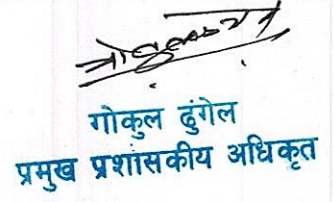 गोकुल ढुंगेल
प्रमुख प्रशासकीय अधिकृत